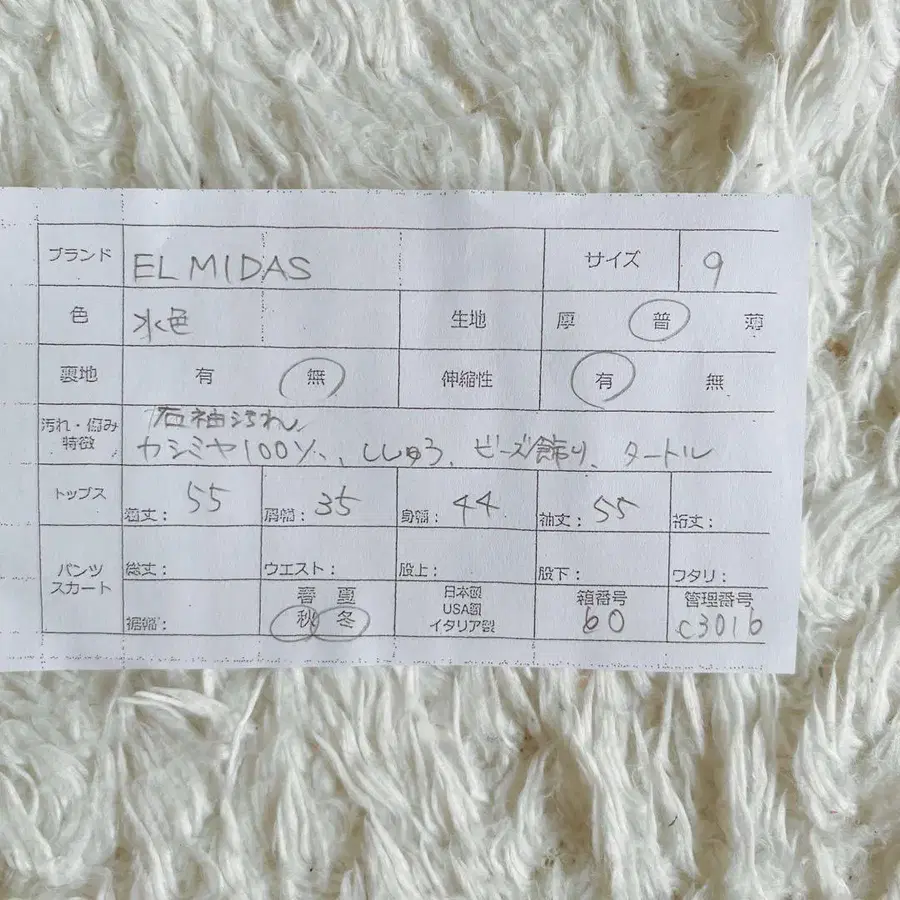 ブランド ELMIDAS サイズ 9
色 水色 生地 厚 普 薄
裏地 有 無 伸縮性 有 無
汚れ・傷み 右袖汚れ
特徴 カシミヤ100%、ししゅう、ビーズ飾り、タートル
トップス 着丈: 55 肩幅: 35 身幅: 44 袖丈: 55 裄丈:
パンツ スカート 総丈: ウエスト: 股上: 股下: ワタリ:
裾幅: 春 夏 秋 冬 日本製 USA製 イタリア製 箱番号 60 管理番号 C3016